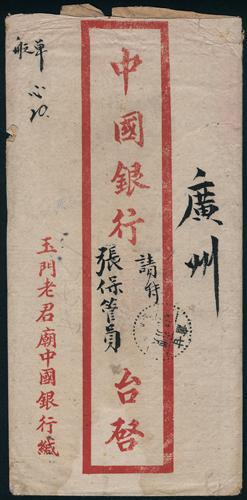 廣州
中國銀行
請付
張保管員
台啓
玉門老君廟中國銀行緘
單